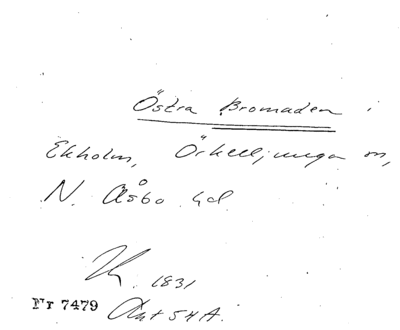 Östra Bromaden i
Ekholm, Örkelljunga sn,
N. Åsbo hd
1831
Nr 7479 Ant 54A.